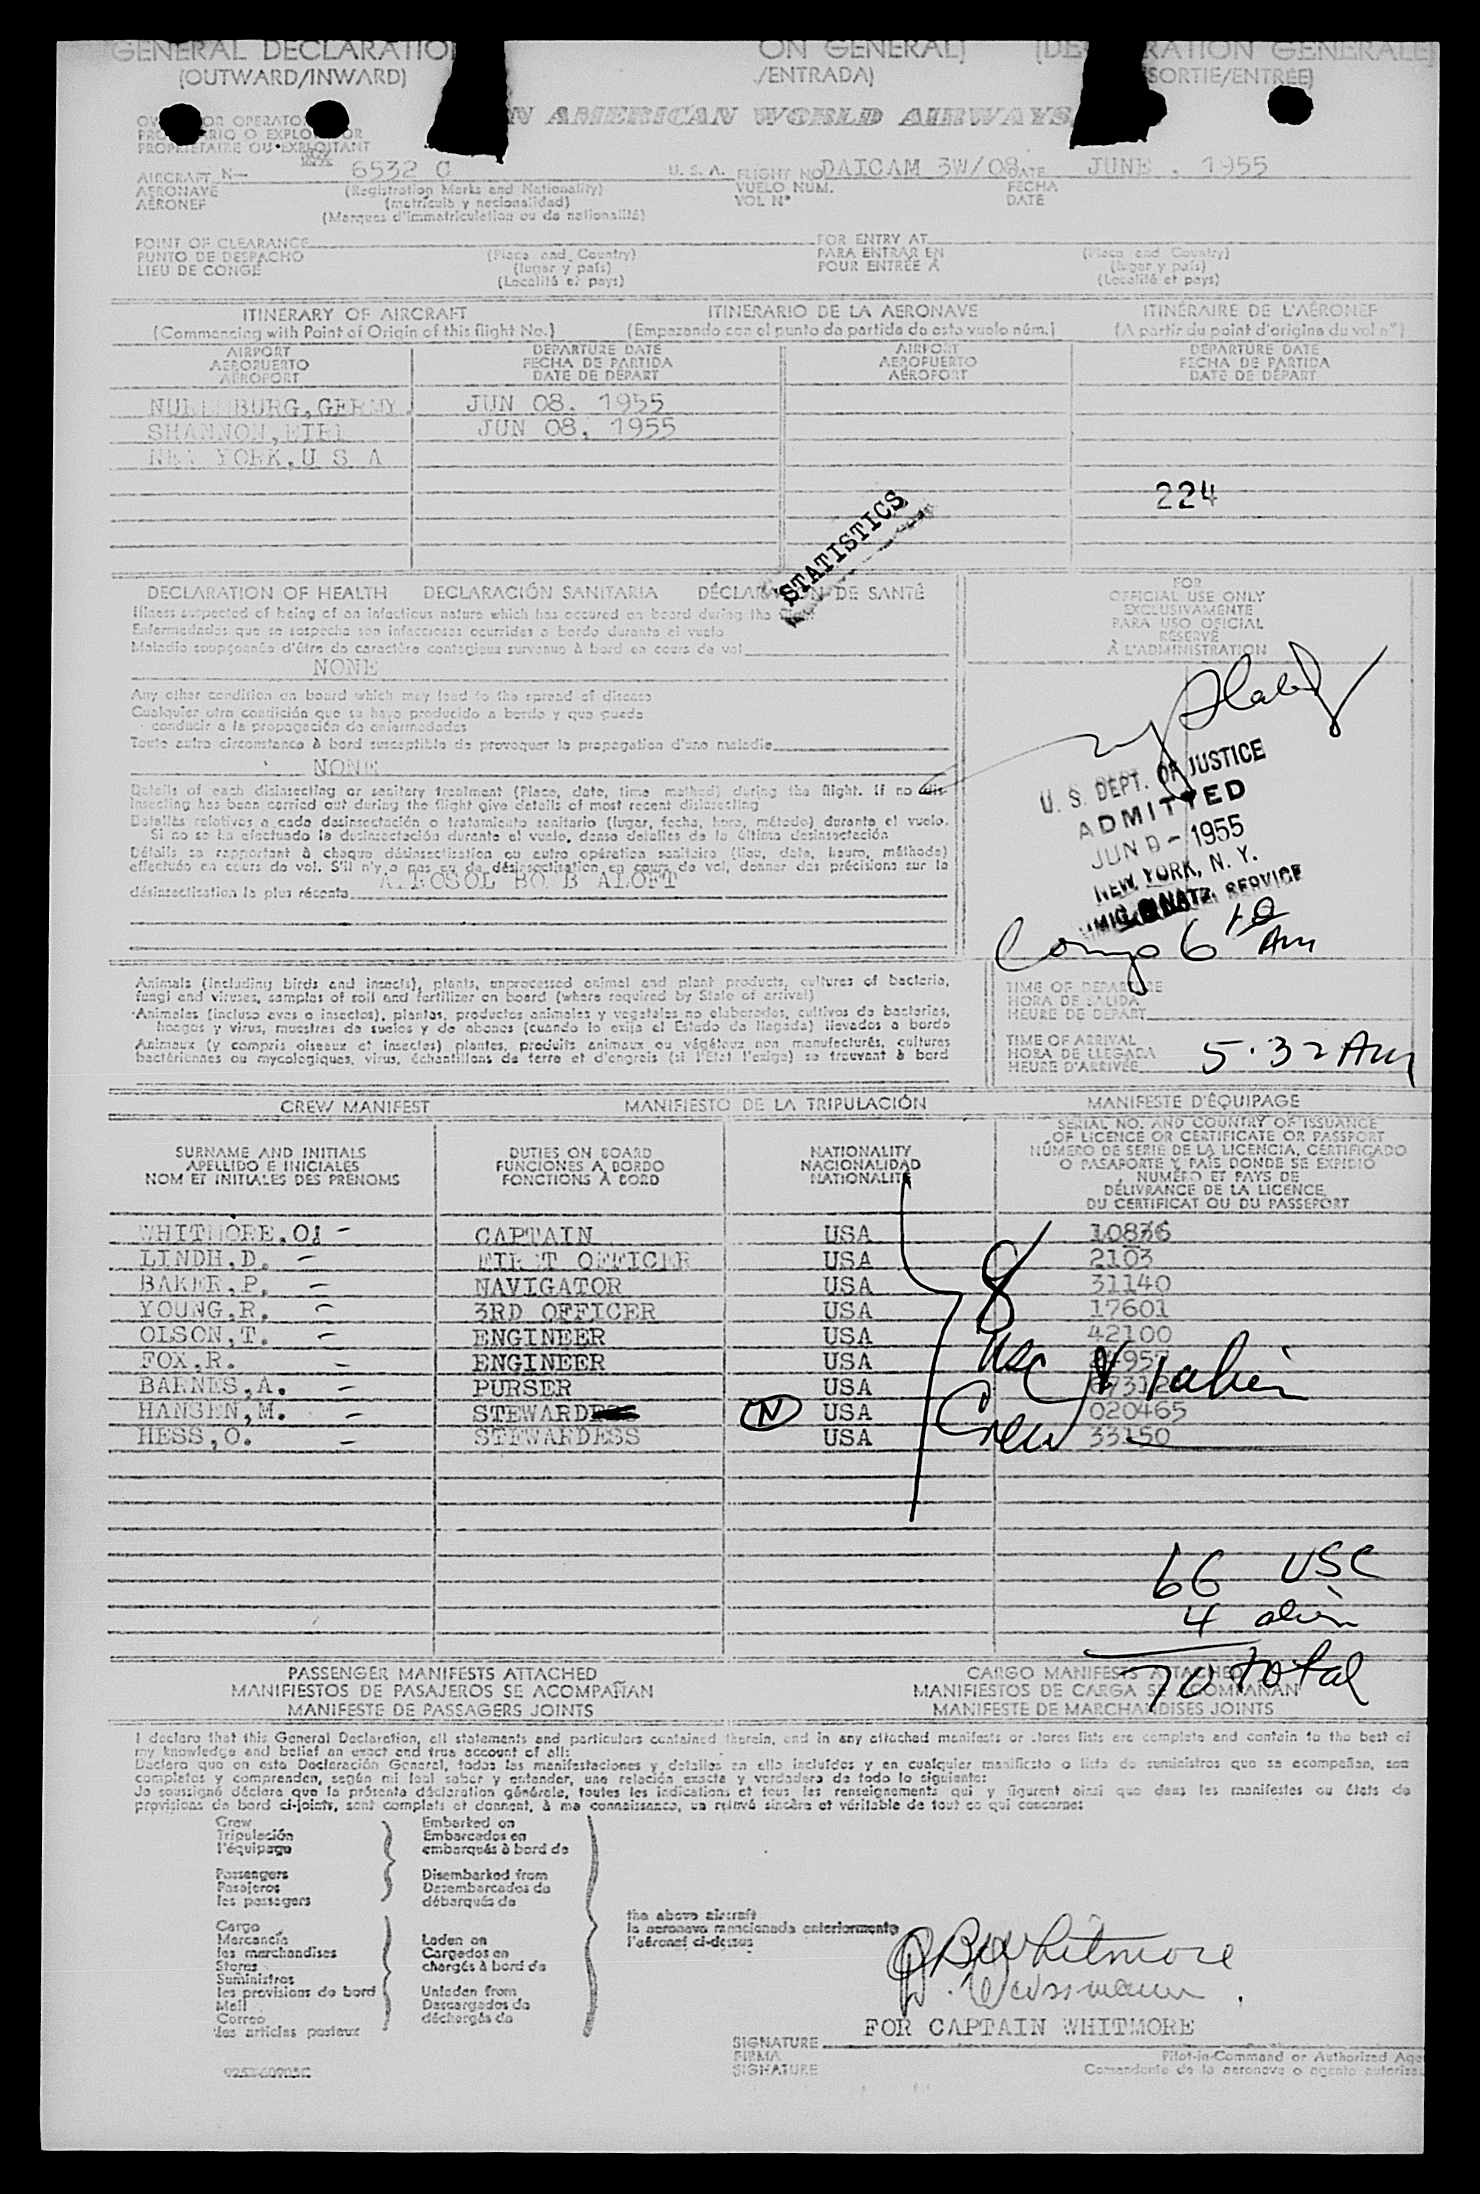 GENERAL DECLARATION ON GENERAL) RATION GENERALE)
(OUTWARD/INWARD) /ENTRADA) SORTIE/ENTRÉE)
AMERICAN WORLD AIRWAYS,
PROPRIETAIRE OU EXPLOITANT
AIRCRAFT N— 6532 C U. S. A. FLIGHT NO. DAICAM 3W/08 DATE JUNE , 1955
AERONAVE (Registration Marks and Nationality) VUELO NUM. FECHA
AÉRONEF (matricula y nacionalidad) VOL Nº DATE
(Marques d'immatriculation ou de nationalité)
POINT OF CLEARANCE FOR ENTRY AT
PUNTO DE DESPACHO (Place and Country) PARA ENTRAR EN (Place and Country)
LIEU DE CONGÉ (lugar y país) POUR ENTRÉE A (lugar y país)
(Localité et pays) (Localité et pays)
ITINERARY OF AIRCRAFT ITINERARIO DE LA AERONAVE ITINÉRAIRE DE L'AÉRONEF
(Commencing with Point of Origin of this flight No.) (Empezando con el punto de partida de este vuelo núm.) (A partir du point d'origine du vol nº)
AIRPORT DEPARTURE DATE AIRPORT DEPARTURE DATE
AEROPUERTO FECHA DE PARTIDA AEROPUERTO FECHA DE PARTIDA
AÉROPORT DATE DE DÉPART AÉROPORT DATE DE DÉPART
BURG, GER JUN 08. 1955
SHANNON, EIRE JUN 08. 1955
NEW YORK, U S A
224
STATISTICS
DECLARATION OF HEALTH DECLARACIÓN SANITARIA DE SANTÉ
Illness suspected of being of an infectious nature which has occured on board during the
Enfermedades que se sospecha son infecciosas ocurridas a bordo durante el vuelo
Maladie soupçonnée d'être de caractère contagieux survenue à bord en cours de vol
NONE
Any other condition on board which may lead to the spread of disease
Cualquier otra condición que se haya producido a bordo y que pueda
conducir a la propagación de enfermedades
Toute autre circonstance à bord susceptible de provoquer la propagation d'une maladie
NONE
Details of each disinsecting or sanitary treatment (Place, date, time method) during the flight. If no dis-
insecting has been carried out during the flight give details of most recent disinsecting
Detalles relativos a cada desinsectación o tratamiento sanitario (lugar, fecha, hora, método) durante el vuelo.
Si no se ha efectuado la desinsectación durante el vuelo, dense detalles de la última desinsectación
Détails se rapportant à chaque désinsectisation ou autre opération sanitaire (lieu, date, heure, méthode)
effectuée en cours de vol. S'il n'y a pas eu de désinsectisation en cours de vol, donner des précisions sur la
désinsectisation la plus récente AEROSOL BOMB ALOFT
FOR
OFFICIAL USE ONLY
EXCLUSIVAMENTE
PARA USO OFICIAL
RÉSERVÉ
À L'ADMINISTRATION
U. S. DEPT. OF JUSTICE
ADMITTED
JUN 9 - 1955
NEW YORK, N. Y.
NATZ. SERVICE
6 10 Am
Animals (including birds and insects), plants, unprocessed animal and plant products, cultures of bacteria,
fungi and viruses, samples of soil and fertilizer on board (where required by State of arrival)
Animales (incluso aves o insectos), plantas, productos animales y vegetales no elaborados, cultivos de bacterias,
hongos y virus, muestras de suelos y de abonos (cuando lo exija el Estado de llegada) llevados a bordo
Animaux (y compris oiseaux et insectes) plantes, produits animaux ou végétaux non manufacturés, cultures
bactériennes ou mycologiques, virus, échantillons de terre et d'engrais (si l'Etat l'exige) se trouvant à bord
TIME OF DEPARTURE
HORA DE SALIDA
HEURE DE DÉPART
TIME OF ARRIVAL
HORA DE LLEGADA 5:32 Am
HEURE D'ARRIVÉE
CREW MANIFEST MANIFIESTO DE LA TRIPULACIÓN MANIFESTE D'ÉQUIPAGE
SURNAME AND INITIALS DUTIES ON BOARD NATIONALITY SERIAL NO. AND COUNTRY OF ISSUANCE
APELLIDO E INICIALES FUNCIONES A BORDO NACIONALIDAD OF LICENCE OR CERTIFICATE OR PASSPORT
NOM ET INITIALES DES PRENOMS FONCTIONS À BORD NATIONALITÉ NÚMERO DE SERIE DE LA LICENCIA, CERTIFICADO
O PASAPORTE Y PAÍS DONDE SE EXPIDIÓ
NUMÉRO ET PAYS DE
DÉLIVRANCE DE LA LICENCE,
DU CERTIFICAT OU DU PASSEPORT
WHITMORE, O. - CAPTAIN USA 10836
LINDH, D. - FIRST OFFICER USA 2103
BAKER, P. - NAVIGATOR USA 31140
YOUNG, R. - 3RD OFFICER USA 17601
OLSON, T. - ENGINEER USA 42100
FOX, R. - ENGINEER USA 957
BARNES, A. - PURSER USA
HANSEN, M. - STEWARD N USA 020465
HESS, O. - STEWARDESS USA 33150
8 usc & 1 alien
Crew
66 USC
4 alien
70 total
PASSENGER MANIFESTS ATTACHED CARGO MANIFESTS ATTACHED
MANIFIESTOS DE PASAJEROS SE ACOMPAÑAN MANIFIESTOS DE CARGA SE ACOMPAÑAN
MANIFESTE DE PASSAGERS JOINTS MANIFESTE DE MARCHANDISES JOINTS
I declare that this General Declaration, all statements and particulars contained therein, and in any attached manifests or stores lists are complete and contain to the best of
my knowledge and belief an exact and true account of all:
Declaro que en esta Declaración General, todas las manifestaciones y detalles en ella incluídos y en cualquier manifiesto o lista de suministros que se acompañan, son
completos y comprenden, según mi leal saber y entender, una relación exacta y verdadera de todo lo siguiente:
Je soussigné déclare que la présente déclaration générale, toutes les indications et tous les renseignements qui y figurent ainsi que dans les manifestes ou états de
provisions de bord ci-joints, sont complets et donnent, à ma connaissance, un relevé sincère et véritable de tout ce qui concerne:
Crew Embarked on
Tripulación Embarcados en
l'équipage embarqués à bord de
Passengers Disembarked from
Pasajeros Desembarcados de
les passagers débarqués de
Cargo
Mercancía Laden on
les marchandises Cargados en
Stores chargés à bord de
Suministros
les provisions de bord Unladen from
Mail Descargados de
Correo déchargés de
les articles postaux
the above aircraft
la aeronave mencionada anteriormente
l'aéronef ci-dessus
OB Whitmore
FOR CAPTAIN WHITMORE
SIGNATURE
FIRMA Pilot-in-Command or Authorized
SIGNATURE Comandante de la aeronave o agente